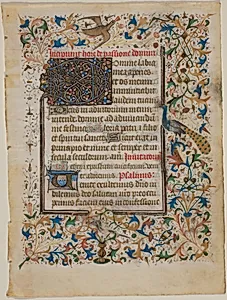 Incipiunt hore de passione domini
Domine labia
mea aperies
et os meum
annunciabit
laudem tuam
Deus in adiutorium meum in
tende domine ad adiuvandum
me festina Gloria patri et filio
et spiritui sancto Sicut erat in
principio et nunc et semper et in
secula seculorum amen
Venite adoremus Psalmus
Venite exultemus domino iu
bilemus deo salutari nostro preoc
cupemus faciem eius in confessione